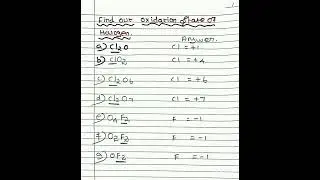 Find out oxidation state of
Halogen.
Answer.
a) Cl2O Cl = +1
b) ClO2 Cl = +4
c) Cl2O6 Cl = +6
d) Cl2O7 Cl = +7
e) O4F2 F = -1
f) O2F2 F = -1
g) OF2 F = -1